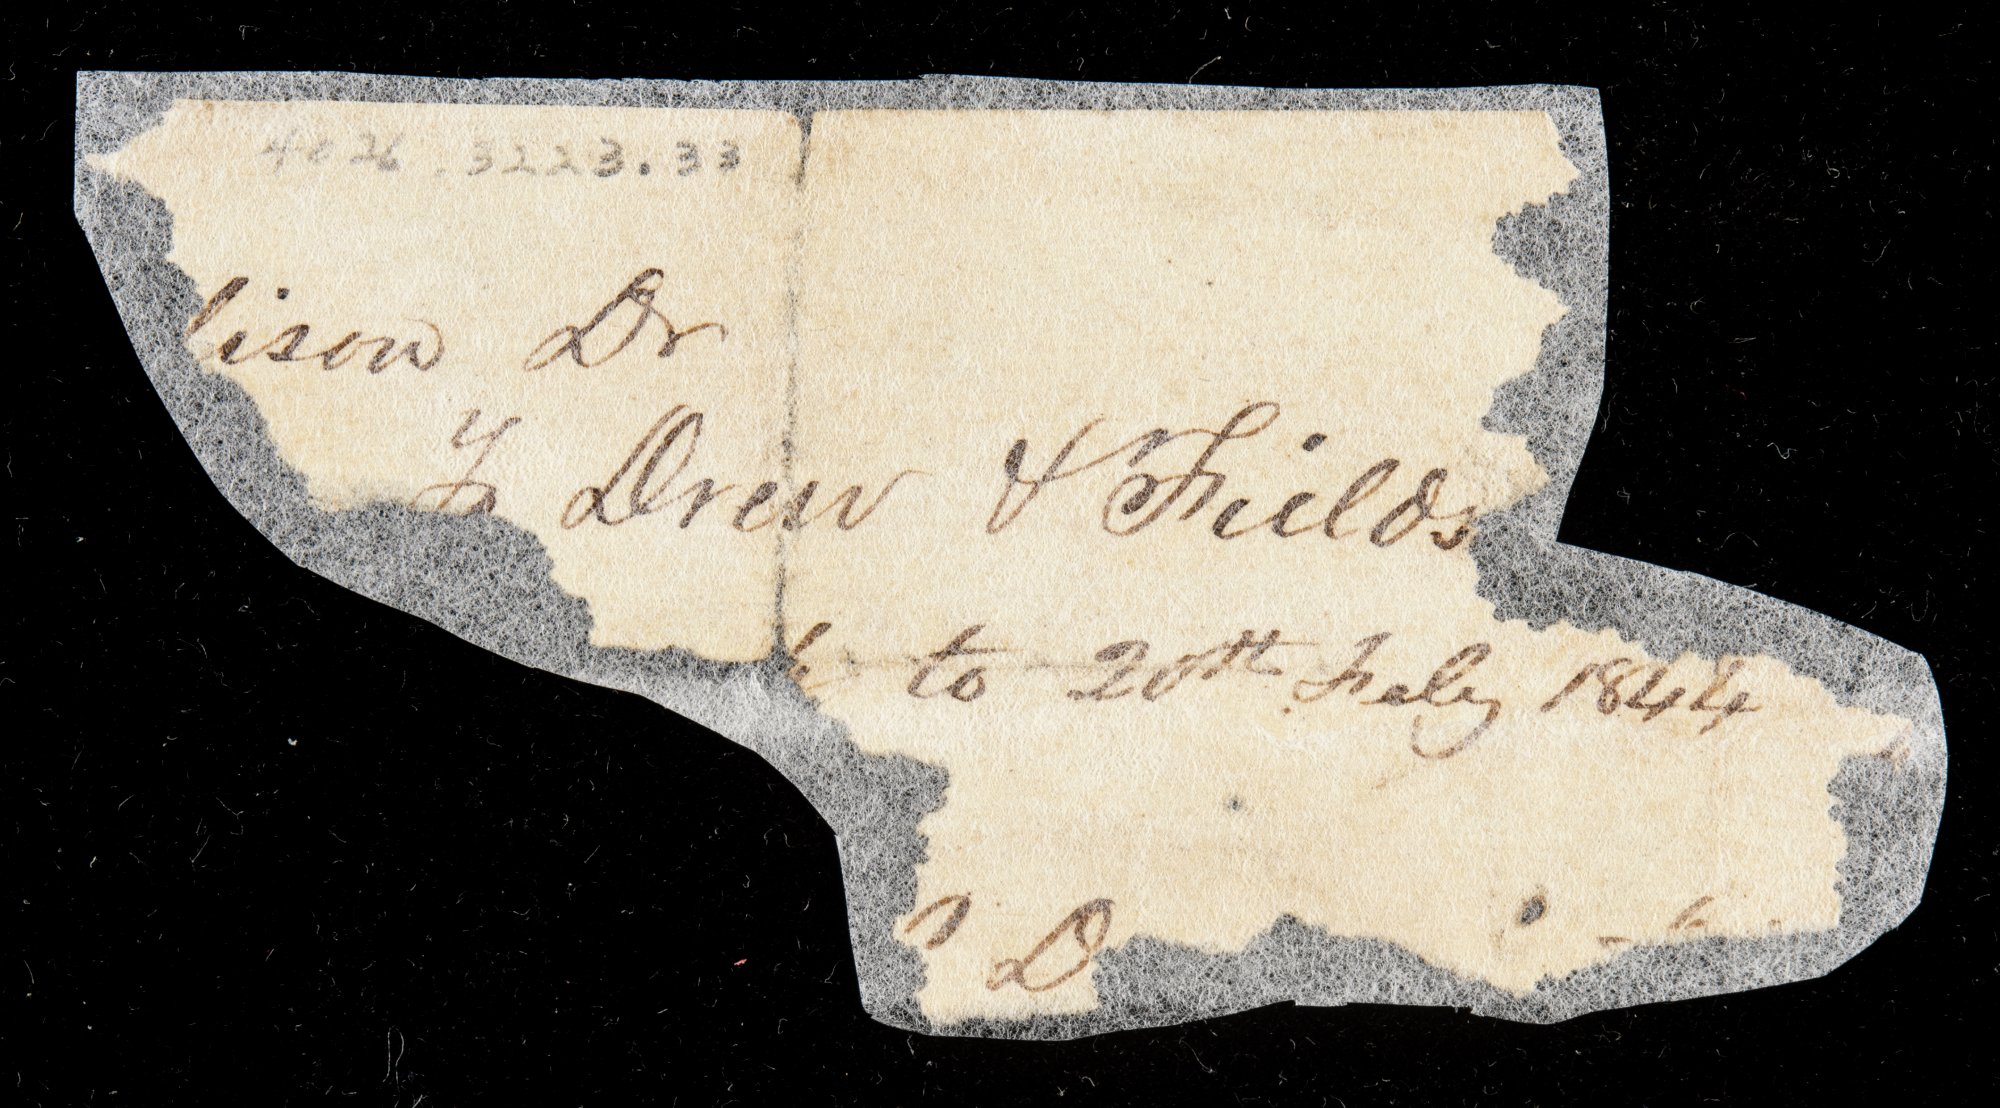 4026.3223.33
lison Dr
To Drew & Fields
to 20th Feby 1844
D